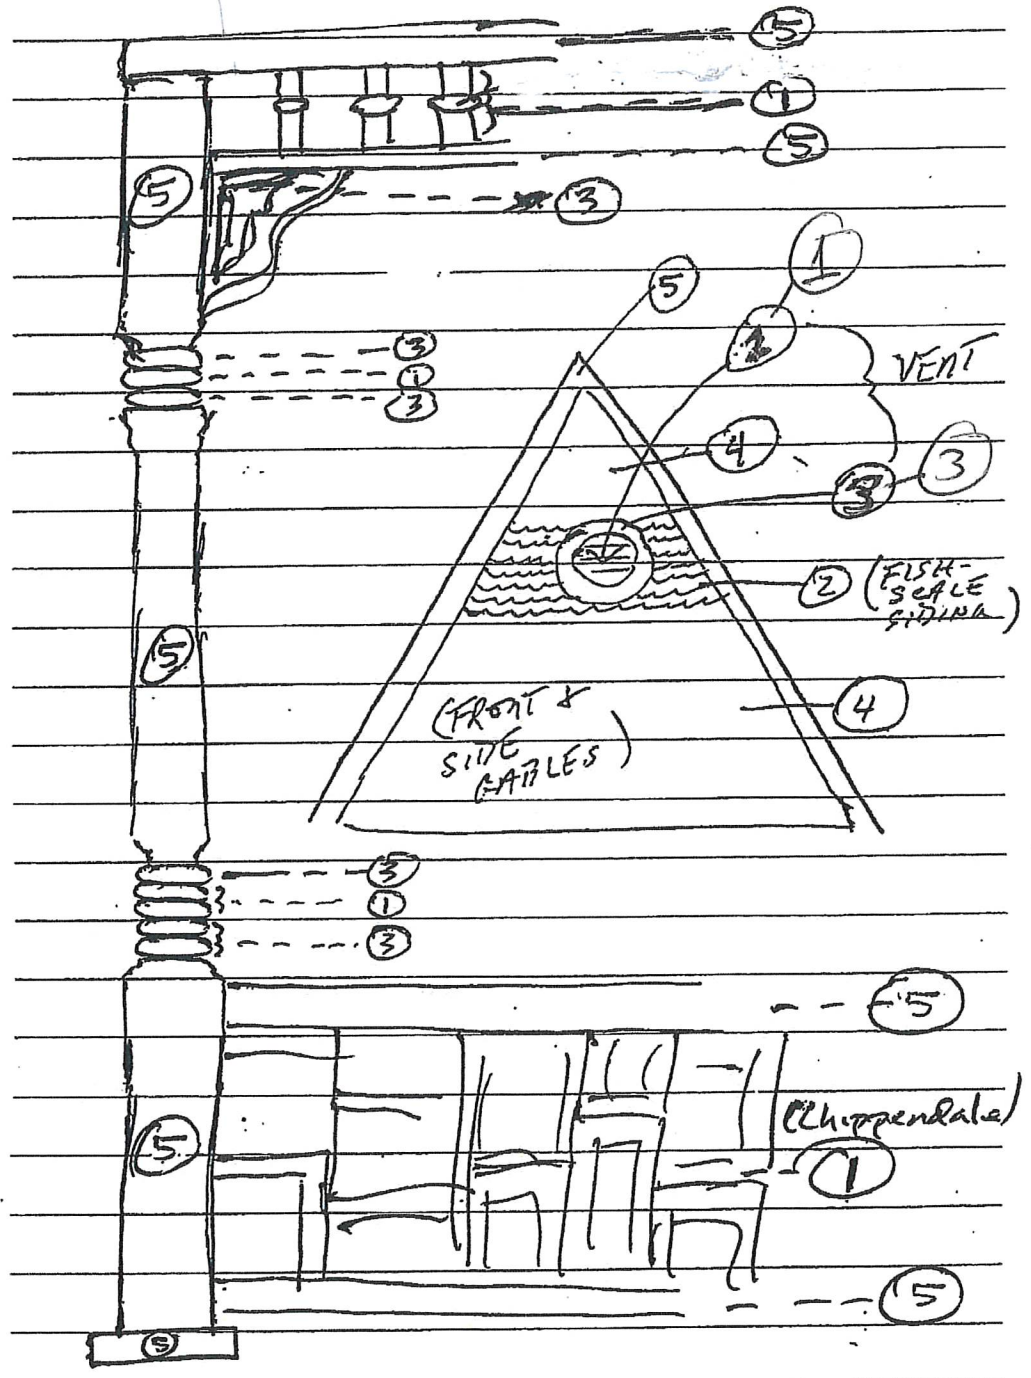 5
1
5
5
3
1
5
2
3
1
3
VENT
4
3
3
2
(FISH-
SCALE
SIDING)
5
4
(FRONT &
SIDE
GABLES)
3
1
3
5
(Chippendale)
5
1
5
5